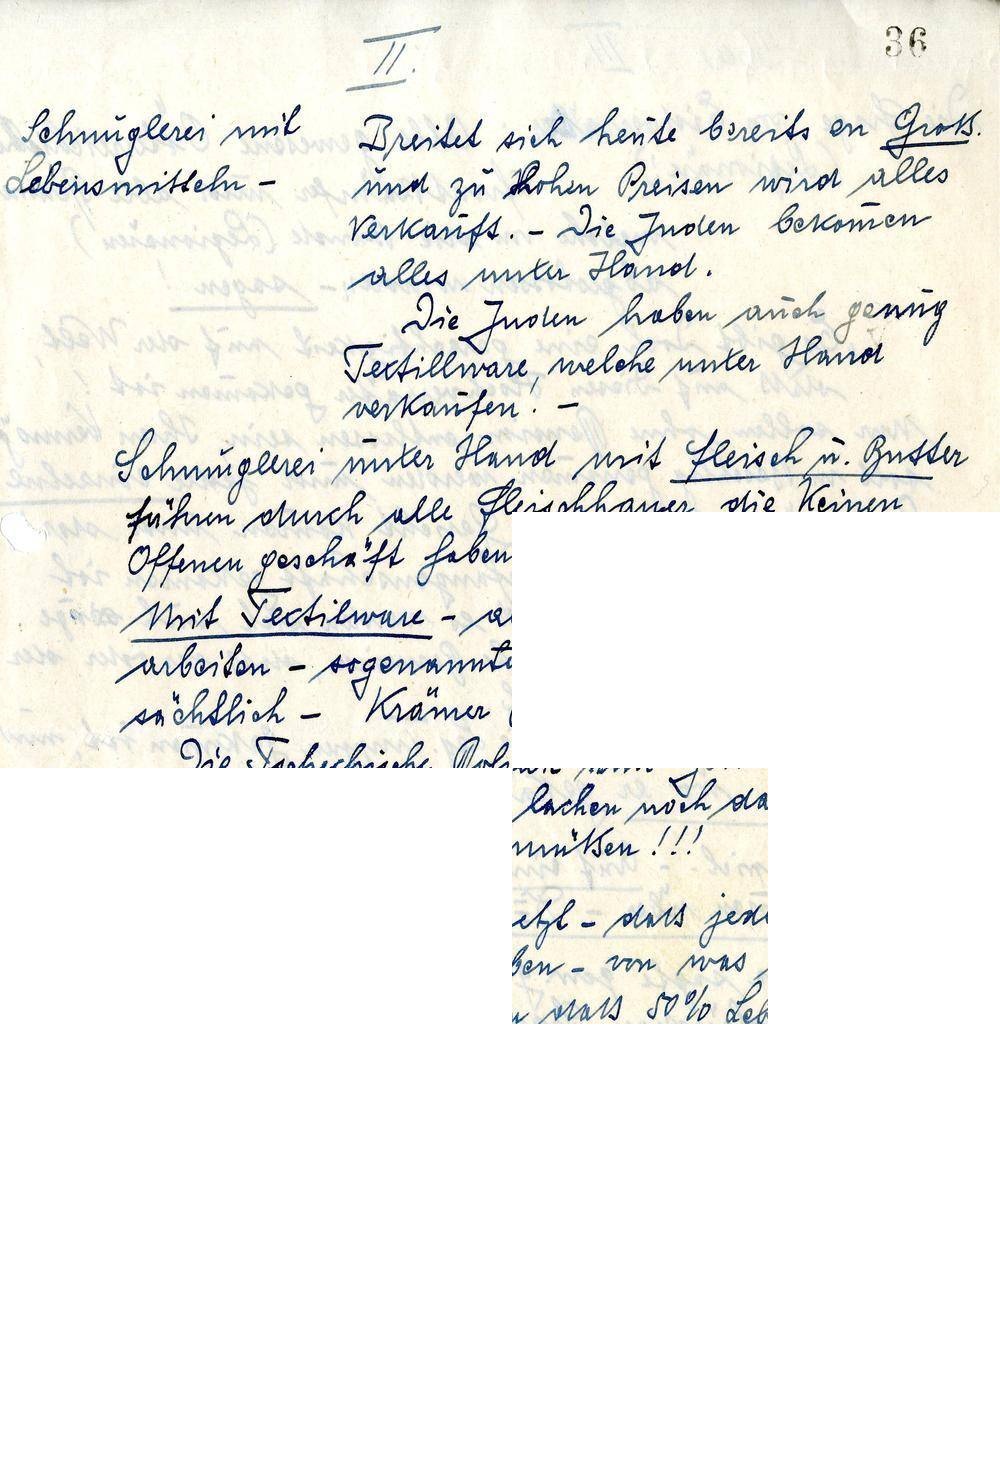 II.
36
Schmuglerei mit
Lebensmitteln -
Breitet sich heute bereits en Groß.
und zu Hohen Preisen wird alles
Verkauft. - Die Juden bekomen
alles unter Hand.
Die Juden haben auch genug
Textillware, welche unter Hand
verkaufen. -
Schmuglerei unter Hand mit fleisch u. Butter
führen durch alle Fleischhauer die Keinen
Offenen geschäft haben
Mit Textilware -
arbeiten - sogenannte
sächtlich - Krämer
Die Tschechische
lachen noch da
müßen !!!
etzt - daß jed
ben - von was
daß 50% Leb